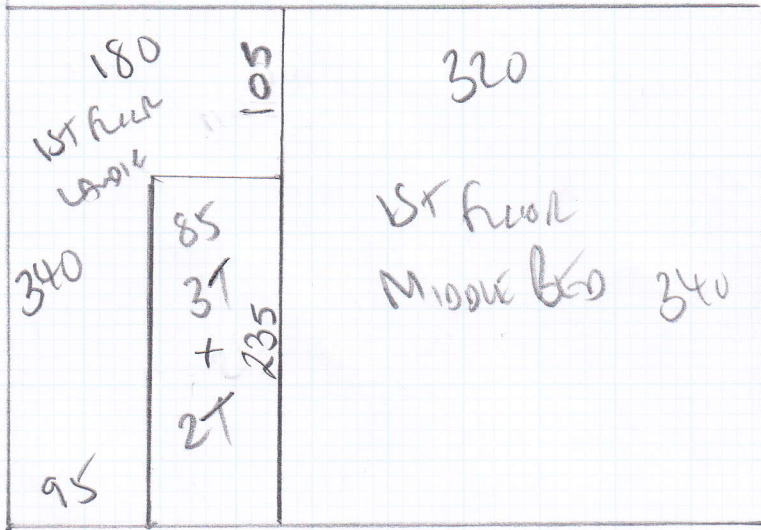 180
105
1ST FLOOR
LANDING
340
85
3T
+
2T
235
95
320
1ST FLOOR
MIDDLE BED 340